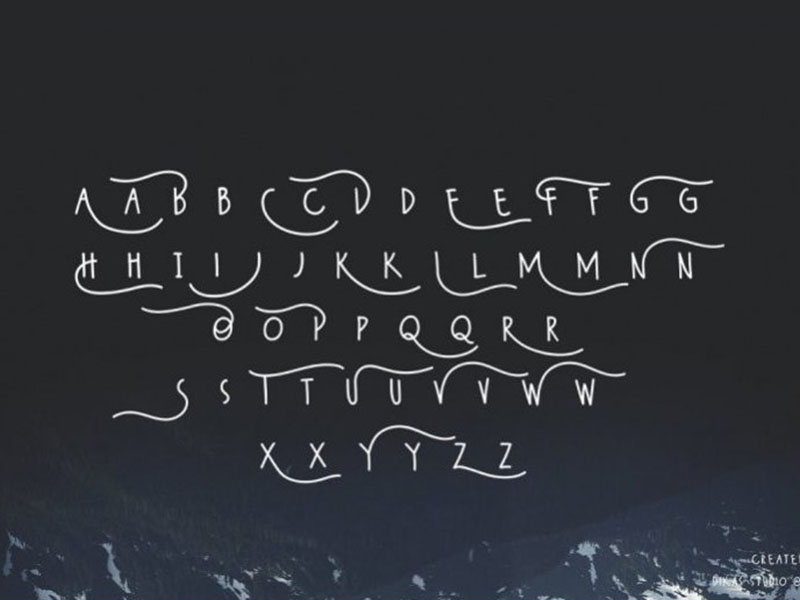 A A B B C C D D E E F F G G
H H I I J J K K L L M M N N
O O P P Q Q R R
S S T T U U V V W W
X X Y Y Z Z
CREATE
DIKAS STUDIO